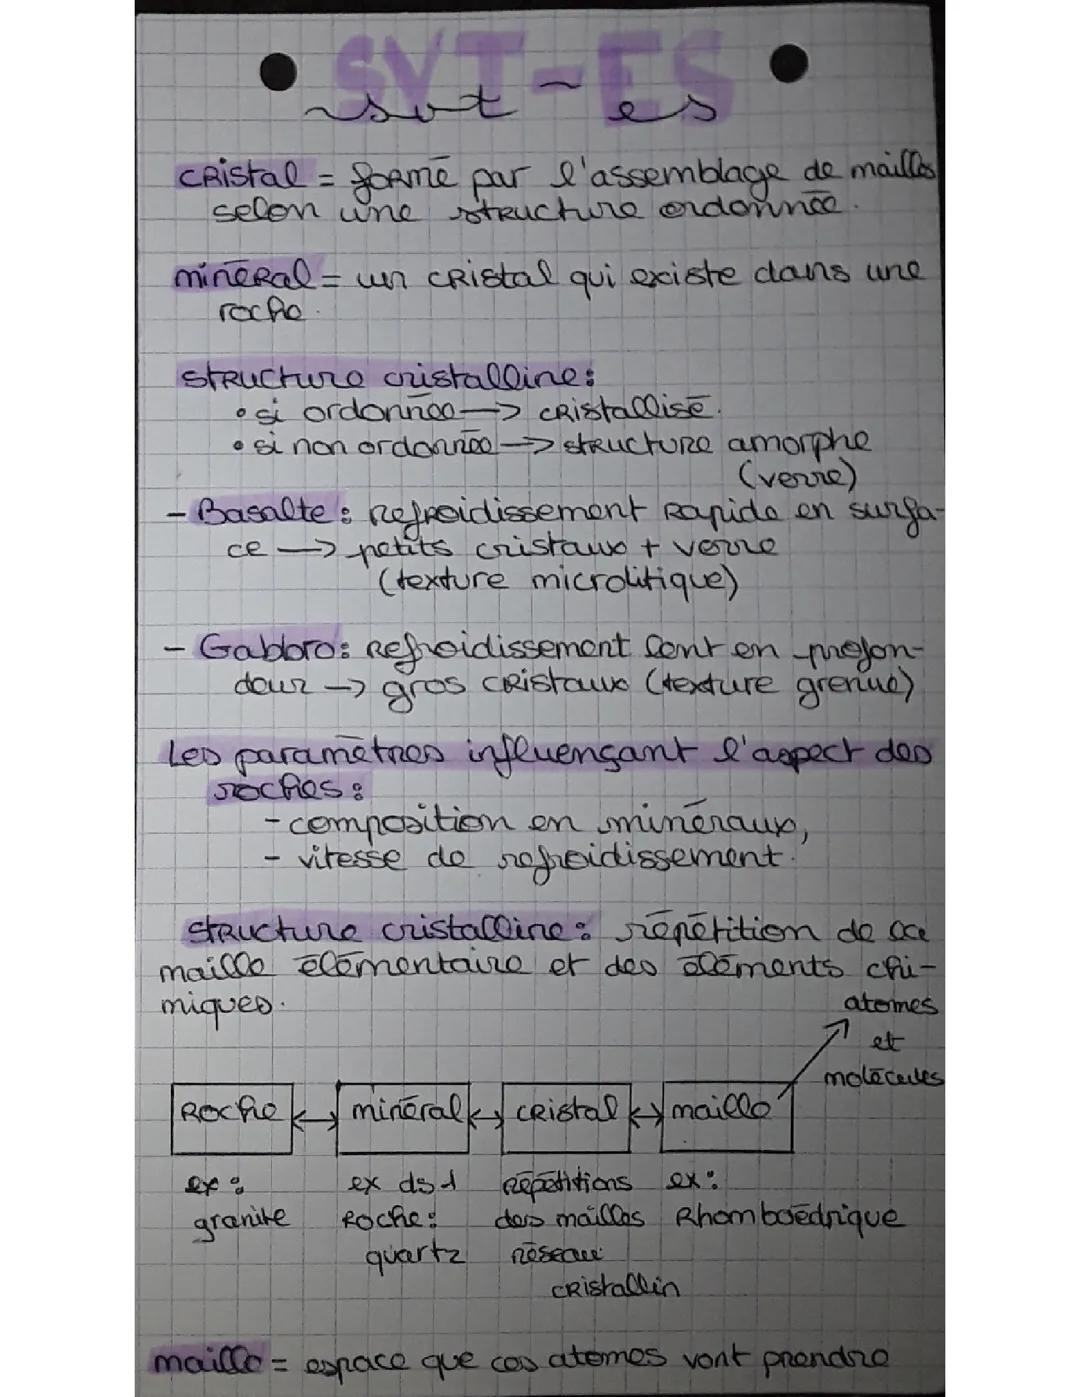 SVT-ES
svt-es
cristal = formé par l'assemblage de mailles
selon une structure ordonnée.
minéral = un cristal qui existe dans une
roche.
structure cristalline :
• si ordonnée → cristallisé.
• si non ordonnée → structure amorphe
(verre)
- Basalte : Refroidissement Rapide en surfa-
ce → petits cristaux + verre
(texture microlitique)
- Gabbro : Refroidissement lent en profon-
deur → gros cristaux (texture grenue)
Les paramètres influençant l'aspect des
roches :
- composition en minéraux,
- vitesse de refroidissement.
structure cristalline : répétition de la
maille élémentaire et des éléments chi-
miques.
atomes
et
molécules
Roche ↔ minéral ↔ cristal ↔ maille
ex : ex ds 1 répétitions ex :
granite Roche : des mailles Rhomboédrique
quartz réseau
cristallin
maille = espace que ces atomes vont prendre